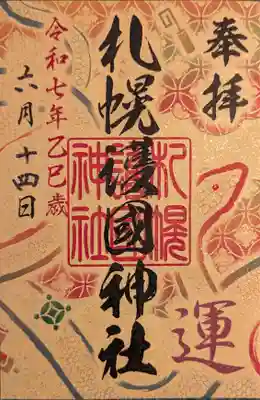 奉拝
札幌護國神社
札幌護國神社
令和七年乙巳歳
六月十四日
運